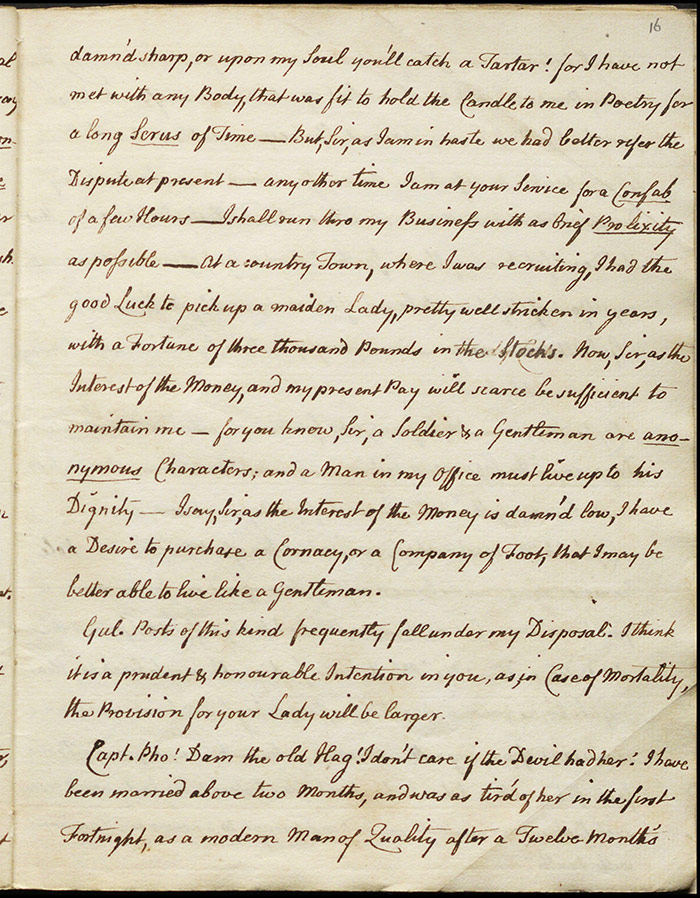 16
damn'd sharp, or upon my Soul you'll catch a Tartar! for I have not
met with any Body, that was fit to hold the Candle to me in Poetry for
a long Serus of Time — But, Sir, as I am in haste we had better refer the
Dispute at present — any other time I am at your Service for a Confab
of a few Hours — I shall run thro my Business with as brief Prolixity
as possible — At a country Town, where I was recruiting, I had the
good Luck to pick up a maiden Lady, pretty well stricken in years,
with a Fortune of three thousand Pounds in the Stocks. Now, Sir, as the
Interest of the Money, and my present Pay will scarce be sufficient to
maintain me — for you know, Sir, a Soldier & a Gentleman are ano-
nymous Characters; and a Man in my Office must live up to his
Dignity — I say, Sir, as the Interest of the Money is damn'd low, I have
a Desire to purchase a Cornacy, or a Company of Foot, that I may be
better able to live like a Gentleman.
Gul. Posts of this kind frequently fall under my Disposal. I think
it is a prudent & honourable Intention in you, as, in Case of Mortality,
the Provision for your Lady will be larger.
Capt. Pho! Dam the old Hag! I don't care if the Devil had her! I have
been married above two Months, and was as tir'd of her in the first
Fortnight, as a modern Man of Quality after a Twelve Month's